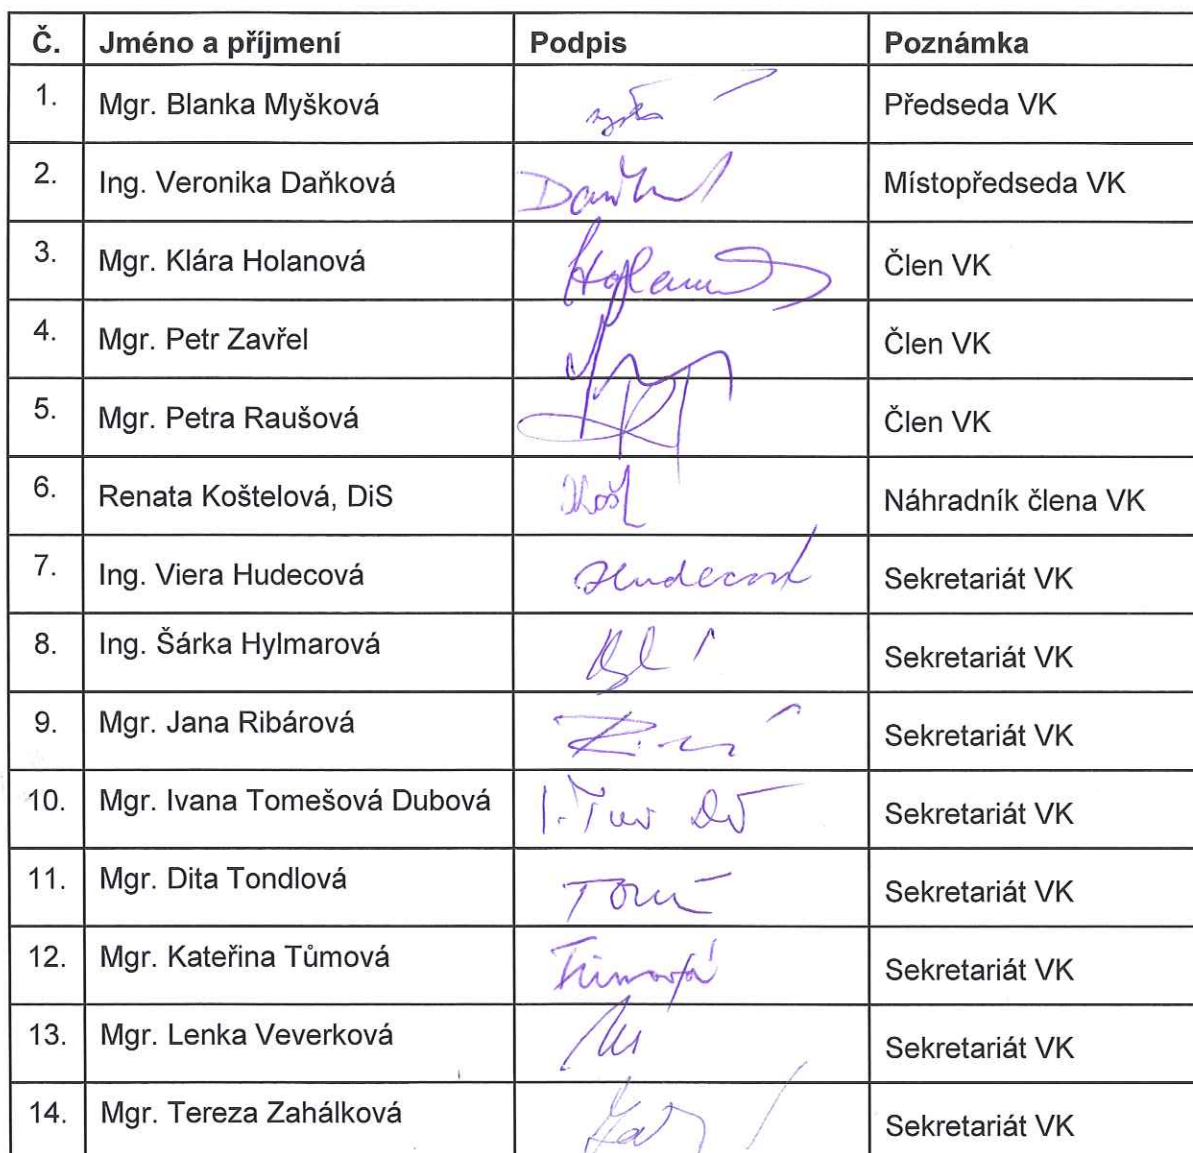 Č. Jméno a příjmení Podpis Poznámka
1. Mgr. Blanka Myšková Předseda VK
2. Ing. Veronika Daňková Místopředseda VK
3. Mgr. Klára Holanová Člen VK
4. Mgr. Petr Zavřel Člen VK
5. Mgr. Petra Raušová Člen VK
6. Renata Koštelová, DiS Náhradník člena VK
7. Ing. Viera Hudecová Hudecová Sekretariát VK
8. Ing. Šárka Hylmarová Sekretariát VK
9. Mgr. Jana Ribárová Sekretariát VK
10. Mgr. Ivana Tomešová Dubová Sekretariát VK
11. Mgr. Dita Tondlová Sekretariát VK
12. Mgr. Kateřina Tůmová Tůmová Sekretariát VK
13. Mgr. Lenka Veverková Sekretariát VK
14. Mgr. Tereza Zahálková Sekretariát VK